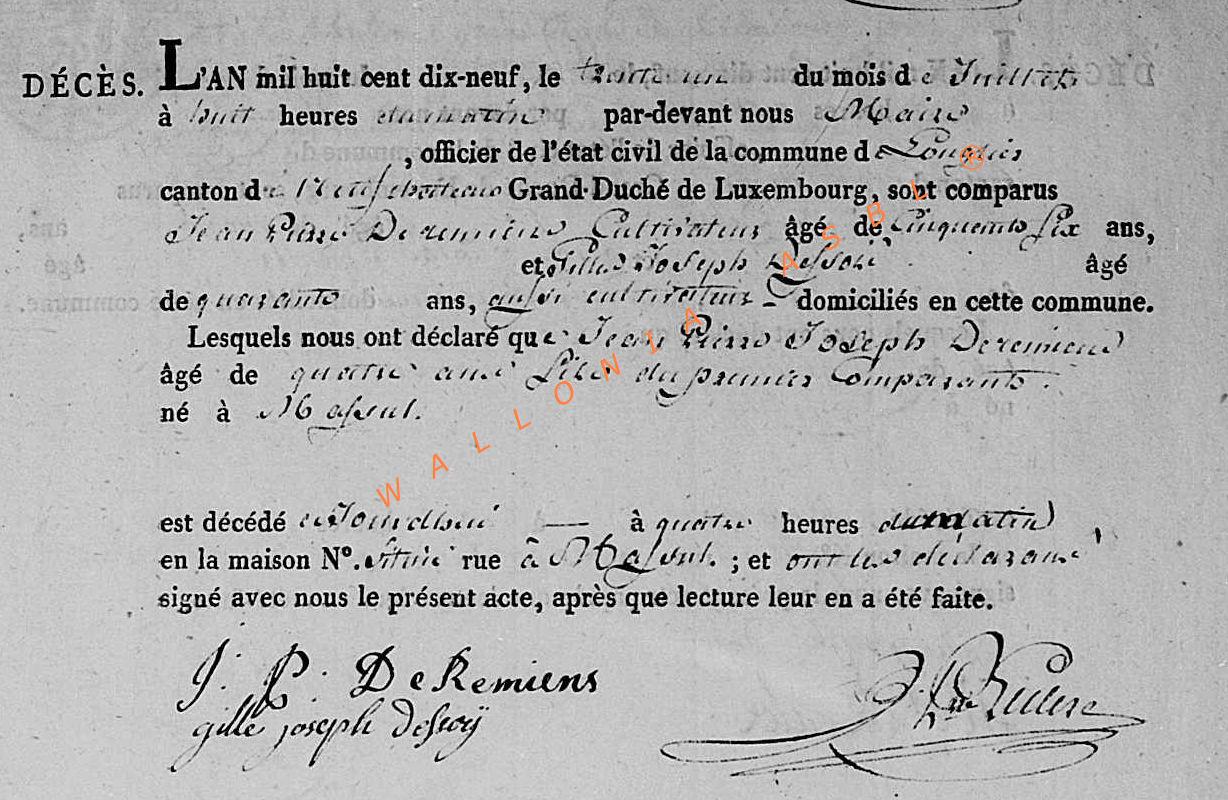 DÉCÈS. L'AN mil huit cent dix-neuf, le trente un du mois de Juillet
à huit heures du matin par-devant nous Maire
, officier de l'état civil de la commune de Longlier
canton de Neufchateau Grand-Duché de Luxembourg, sont comparus
Jean Pierre Deremiens Cultivateur âgé de Cinquante Six ans,
et Gilles Joseph Dessoi âgé
de quarante ans, aussi cultivateur domiciliés en cette commune.
Lesquels nous ont déclaré que Jean Pierre Joseph Deremiens
âgé de quatre ans fils du premier Comparant
né à Massul.
est décédé aujourdhui à quatre heures du matin
en la maison N°. située rue à Massul. ; et ont les déclarans
signé avec nous le présent acte, après que lecture leur en a été faite.
J. P. DeRemiens
gille joseph dessoÿ
WALLONIA ASBL ®